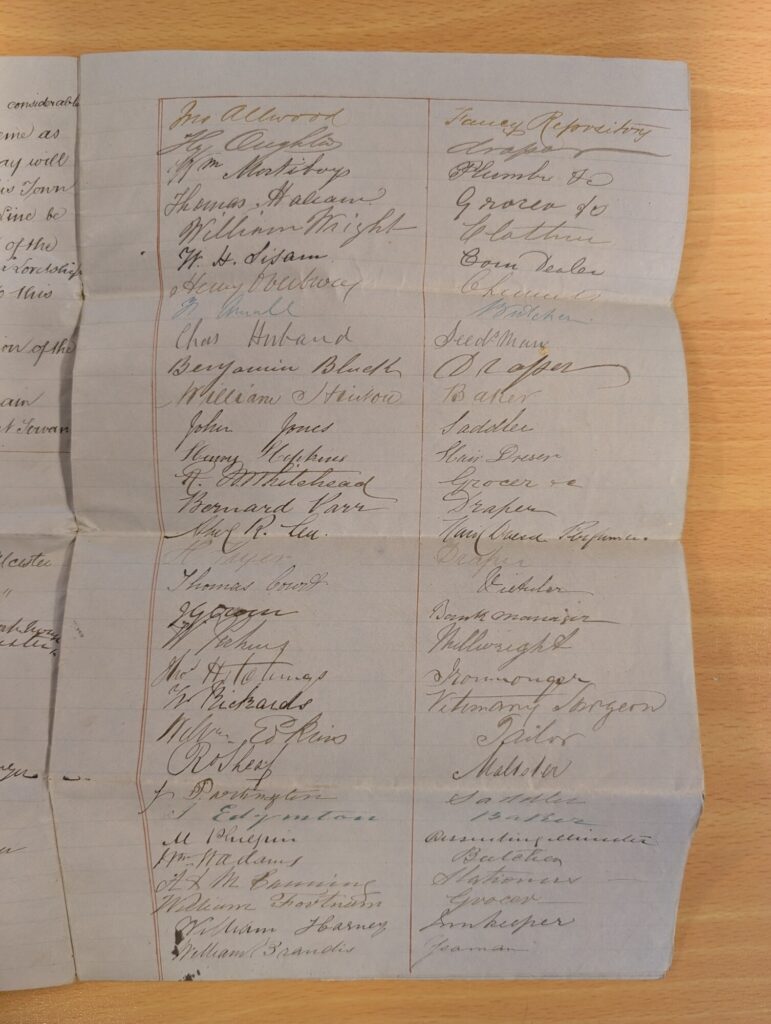 considerable
eme as
ay will
is Town
Line be
of the
Lordship
to this
ion of the
ain
Jno Allwood Fancy Repository
Hy Oughton draper
Wm Mortiboys Plumber &c
Thomas Grocer &c
William Wright Clothier
W. H. Lisam Corn Dealer
Henry Chemist
Butcher
Chas Huband Seedsman
Benjamin Bluck Draper
William Hinton Baker
John Jones Saddler
Henry Hopkins Hair Dresser
R. Whitehead Grocer &c
Bernard Parr Draper
R. Lea. Hair Dresser Perfumer
Draper
Thomas Court Victuler
Bank manager
W Millwright
Thos Hitchings Ironmonger
W Rickards Veterinary Surgeon
Edkins Tailor
R Sheaf Maltster
J Partington Saddler
Baker
M Philpin Dissenting Minister
Wm Adams Butcher
H & M Cunning Stationers
William Fortnam Grocer
William Harvey Innkeeper
William Brandis Yeoman